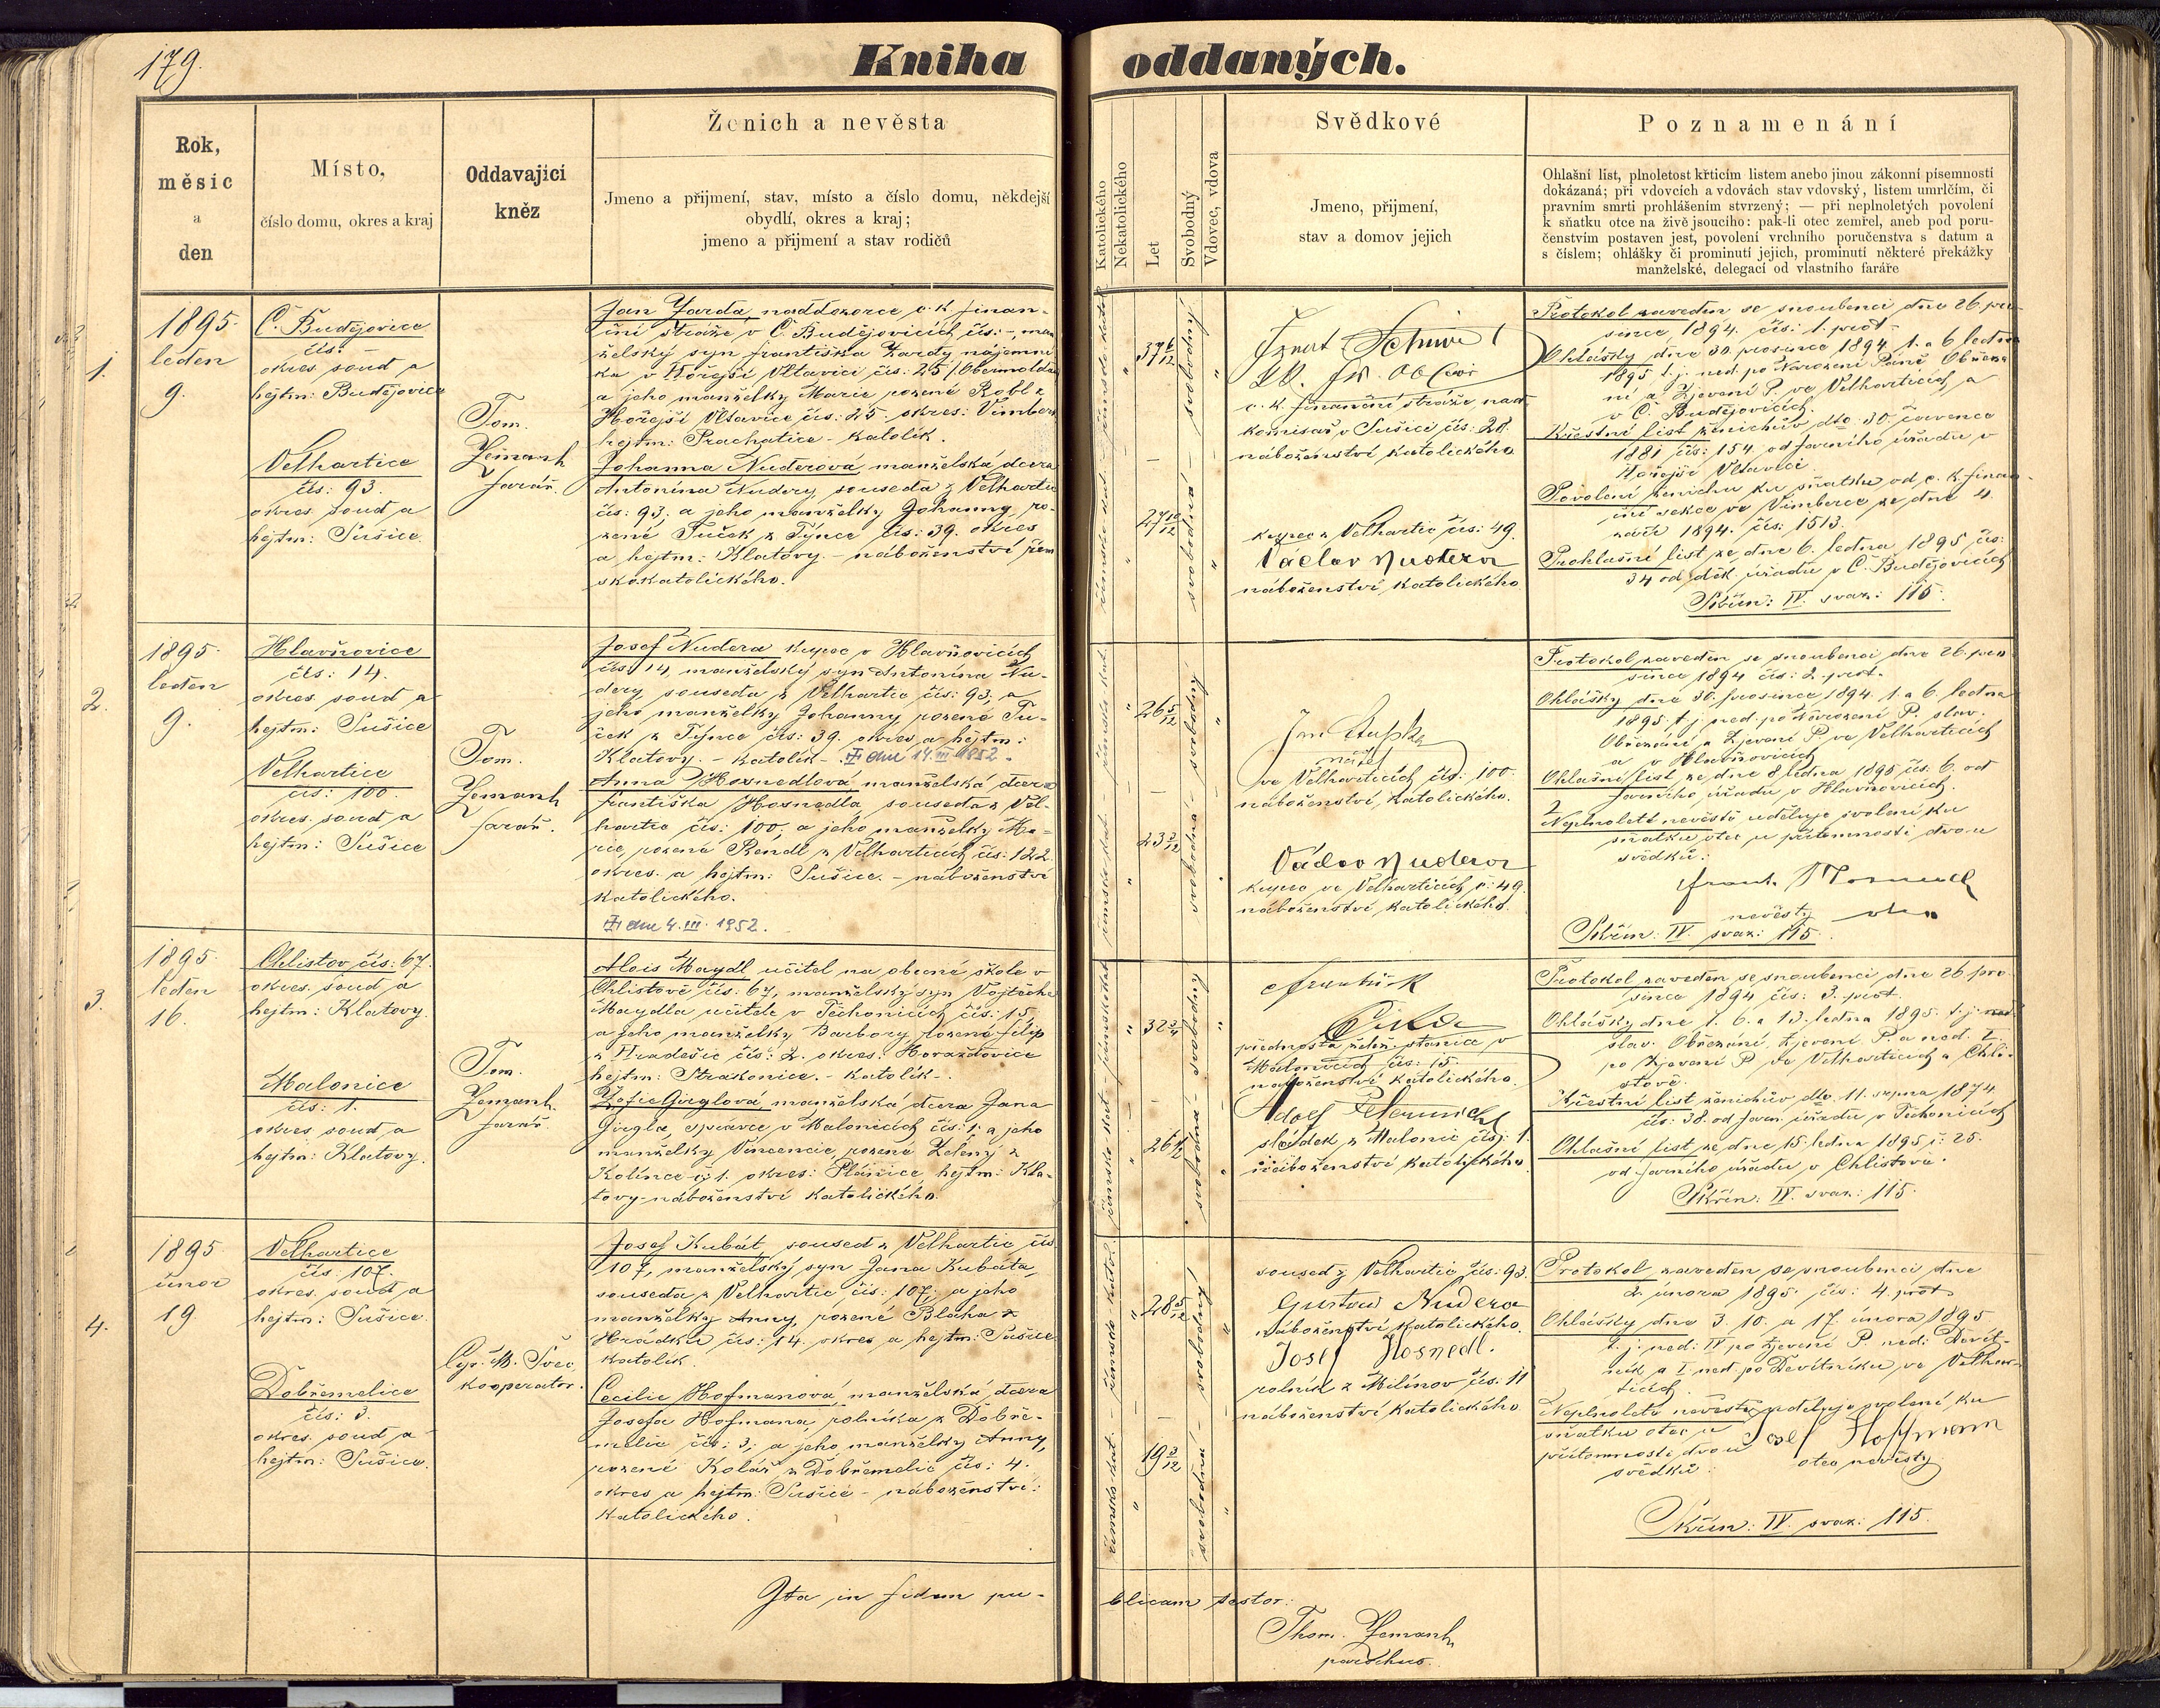 179.
Kniha oddaných.
Rok,
měsíc
a
den
Místo,
číslo domu, okres a kraj
Oddavající
kněz
Ženich a nevěsta
Jmeno a přijmení, stav, místo a číslo domu, někdejší
obydlí, okres a kraj;
jmeno a přijmení a stav rodičů
Katolického
Nekatolického
Let
Svobodný
Vdovec, vdova
Svědkové
Jmeno, přijmení,
stav a domov jejich
Poznamenání
Ohlašní list, plnoletost křticím listem anebo jinou zákonní písemností
dokázaná; při vdovcích a vdovách stav vdovský, listem umrlčím, či
pravním smrti prohlášením stvrzený; — při neplnoletých povolení
k sňatku otce na živě jsoucího: pak-li otec zemřel, aneb pod poru-
čenstvím postaven jest, povolení vrchního poručenstva s datum a
s číslem; ohlášky či prominutí jejich, prominutí některé překážky
manželské, delegací od vlastního faráře
1.
1895.
leden
9.
Č. Budějovice
čís: —
okres. soud a
hejtm: Budějovice
Velhartice
čís: 93.
okres. soud a
hejtm: Sušice.
Tom.
Zemanh
farář.
Jan Jarda, naddozorce c. k. finan-
ční stráže v Č. Budějovicích čís: -, man
želský syn Františka Jardy, nájemní
ka v Hořejší Vltavici čís: 25 /Obermoldau
a jeho manželky Marie rozené Robl z
Hořejší Vltavice čís: 25. okres: Vimberk
hejtm: Prachatice - katolík.
Johanna Nuderová, manželská dcera
Antonína Nudery, souseda z Velhartic
čís: 93; a jeho manželky Johanny, ro-
zené Tuček z Týnce čís: 39. okres
a hejtm: Klatovy. - náboženství řím
skokatolického.
římsko kat. -
římsko katol.
37 6/12
27 10/12
svobodný
svobodná
c. k. finanční stráže nad
komisař v Sušici čís: 28.
náboženství katolického.
kupec z Velhartic čís: 49.
Václav Nudera
náboženství katolického
Protokol zaveden se snoubenci dne 26. pro-
since 1894. čís: 1. prot.
Ohlášky dne 30. prosince 1894. 1. a 6 ledna
1895 t. j. ned. po Narození Páně Obřezá
ní a Zjevení P. ve Velharticích a
v Č. Budějovicích.
Křestní list ženichův dto. 30. července
1881 čís: 154. od farního úřadu v
Hořejší Vltavici.
Povolení ženichu ku sňatku od c. k. finan-
ční sekce ve Vimberce ze dne 4.
září 1894. čís: 1513.
Prohlašní list ze dne 6. ledna 1895 čís:
34 od děk. úřadu v Č. Budějovicích
Skřín: IV. svaz: 115.
2.
1895.
leden
9.
Hlavňovice
čís: 14.
okres. soud a
hejtm: Sušice
Velhartice
čís: 100.
okres. soud a
hejtm: Sušice
Tom.
Zemanh
farář.
Josef Nudera kupec v Hlavňovicích
čís: 14, manželský syn Antonína Nu-
dery, souseda z Velhartic čís: 93, a
jeho manželky Johanny, rozené Tu-
ček z Týnce čís: 39. okres a hejtm:
Klatovy. - katolík - dne 14. III 1952.
Anna Hosnedlová, manželská dcera
Františka Hosnedla souseda z Vel-
hartic čís: 100, a jeho manželky Ma-
rie, rozené Rendl z Velhartic čís: 122
okres. a hejtm: Sušice. - náboženství
katolického.
dne 4. III. 1952.
26 5/12
svobodný
svobodná
ve Velharticích čís: 100.
náboženství katolického.
Václav Nudera
kupec ve Velharticích č: 49.
náboženství katolického.
Protokol zaveden se snoubenci dne 26. pro
since 1894 čís: 2. prot.
Ohlášky dne 30. prosince 1894. 1. a 6. ledna
1895. t. j. ned. po Narození P. slav.
Obřezání a Zjevení P. ve Velharticích
a v Hlavňovicích
Ohlašní list ze dne 8 ledna 1895 čís: 6. od
farního úřadu v Hlavňovicích.
Neplnoleté nevěstě uděluje svolení ku
sňatku otec u přítomnosti dvou
svědků:
nevěsty
Skřín: IV. svaz: 115.
3.
1895.
leden
16.
Chlistov čís: 67.
okres. soud a
hejtm: Klatovy.
Malonice
čís: 1.
okres. soud a
hejtm: Klatovy.
Tom.
Zemanh
farář.
Alois Maydl učitel na obecné škole v
Chlistově čís: 67, manželský syn Vojtěcha
Maydla učitele v Těchonicích čís: 15,
a jeho manželky Barbory, rozené Filip
z Hradešic čís: 2. okres: Horažďovice
hejtm: Strakonice. - katolík -.
Žofie Girglová, manželská dcera Jana
Girgla, správce v Malonicích čís: 1. a jeho
manželky Vincencie, rozené Zelený z
Kolince č 1. okres: Plánice, hejtm: Kla-
tovy - náboženství katolického.
32 3/4
26 1/2
svobodný
svobodná
František
přednosta želez. stanice v
Malonicích čís: 15.
náboženství katolického.
Adolf
sládek z Malonic čís: 1.
náboženství katolického
Protokol zaveden se snoubenci dne 26. pro
since 1894 čís: 3. prot.
Ohlášky dne 1. 6. a 13. ledna 1895. t. j. ned.
slav. Obřezání, Zjevení P. a ned. I.
po Zjevení P. ve Velharticích a Chli-
stově.
Křestní list ženichův dto. 11. srpna 1874,
čís: 38. od faru. úřadu v Těchonicích
Ohlašní list ze dne 15. ledna 1895 č: 25.
od farního úřadu v Chlistově.
Skřín: IV. svaz: 115.
4.
1895
únor
19
Velhartice
čís. 107.
okres. soud a
hejtm: Sušice
Dobřemelice
čís: 3.
okres. soud a
hejtm: Sušice.
Cyr. M. Švec,
kooperator.
Josef Kubát, soused z Velhartic čís.
107, manželský syn Jana Kubáta,
souseda z Velhartic čís: 107; a jeho
manželky Anny, rozené Bláha z
Hrádku čís: 14. okres a hejtm: Sušice
katolík.
Cecilie Hofmanová, manželská dcera
Josefa Hofmana, rolníka z Dobře-
melic čís: 3; a jeho manželky Anny,
rozené Kolář z Dobřemelic čís: 4.
okres a hejtm: Sušice - náboženství:
katolického.
28 5/12
19 3/12
svobodný
svobodná
soused z Velhartic čís: 93.
Gustav Nudera
náboženství katolického.
Josef Hosnedl.
rolník z Milínov čís: 11
náboženství katolického
Protokol zaveden se snoubenci dne
2. února 1895. čís: 4. prot.
Ohlášky dne 3. 10. a 17. února 1895
t. j. ned: IV po Zjevení P. ned: Devít-
ník a I. ned. po Devítníku, ve Velhar-
ticích.
Neplnoleté nevěstě uděluje svolení ku
sňatku otec u
přítomnosti dvou
svědků:
Josef Hoffmann
otec nevěsty
Skřín: IV. svaz: 115.
Ita in fidem pu-
blicam testor:
Thom. Zemanh,
parochus.